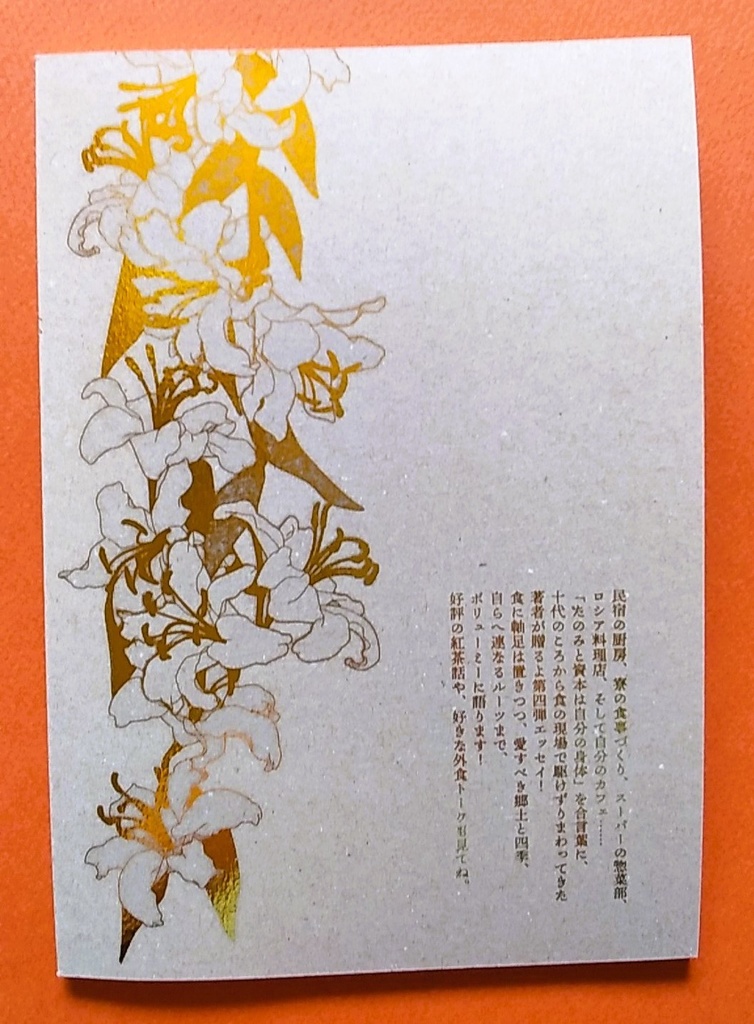 民宿の厨房、寮の食事づくり、スーパーの惣菜部、
ロシア料理店、そして自分のカフェ……
「たのみと資本は自分の身体」を合言葉に、
十代のころから食の現場で駆けずりまわってきた
著者が贈るよ第四弾エッセイ！
食に軸足は置きつつ、愛すべき郷土と四季、
自らへ連なるルーツまで、
ボリューミーに語ります！
好評の紅茶話や、好きな外食トークも見てね。